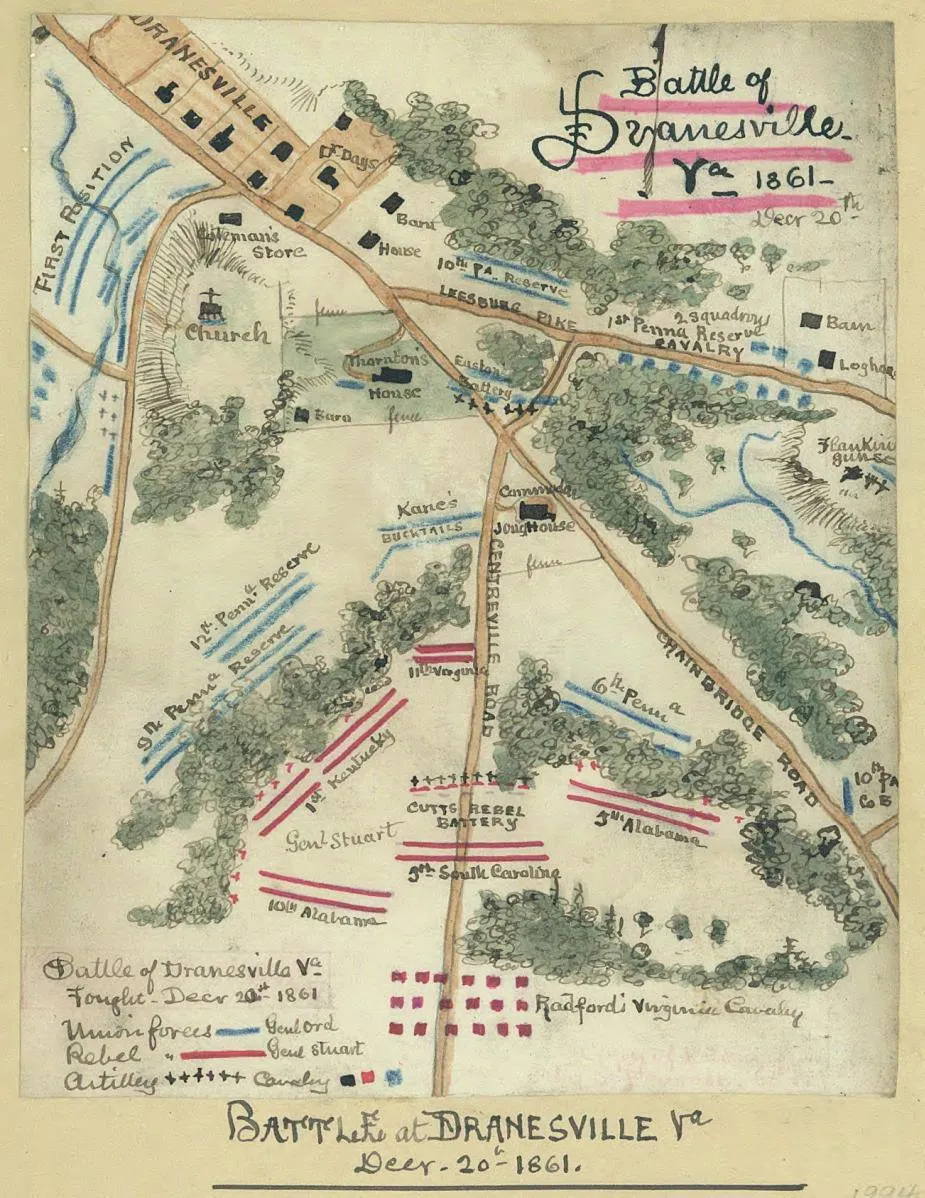 Battle of
Dranesville.
Va 1861-
Decr 20th
DRANESVILLE
Dr Days
FIRST POSITION
Coleman's
Store
Barn
House
10th Pa. Reserve
LEESBURG PIKE
2 squadrons
1st Penna Reserve
CAVALRY
Barn
Church
fence
Thornton's
House
Barn
fence
Easton's
Battery
guns
Kane's
BUCKTAILS
House
fence
CENTREVILLE ROAD
CHAINBRIDGE ROAD
12th Penna Reserve
9th Penna Reserve
11th Virginia
6th Penna
1st Kentucky
10th Pa
Co B
CUTTS REBEL
BATTERY
5th Alabama
Genl Stuart
5th South Carolina
10th Alabama
Radford's Virginia Cavalry
Battle of Dranesville Va
Fought - Decr 20th 1861
Union forces Genl Ord
Rebel " Genl Stuart
Artillery Cavalry
BATTLE at DRANESVILLE Va
Decr. 20th 1861.